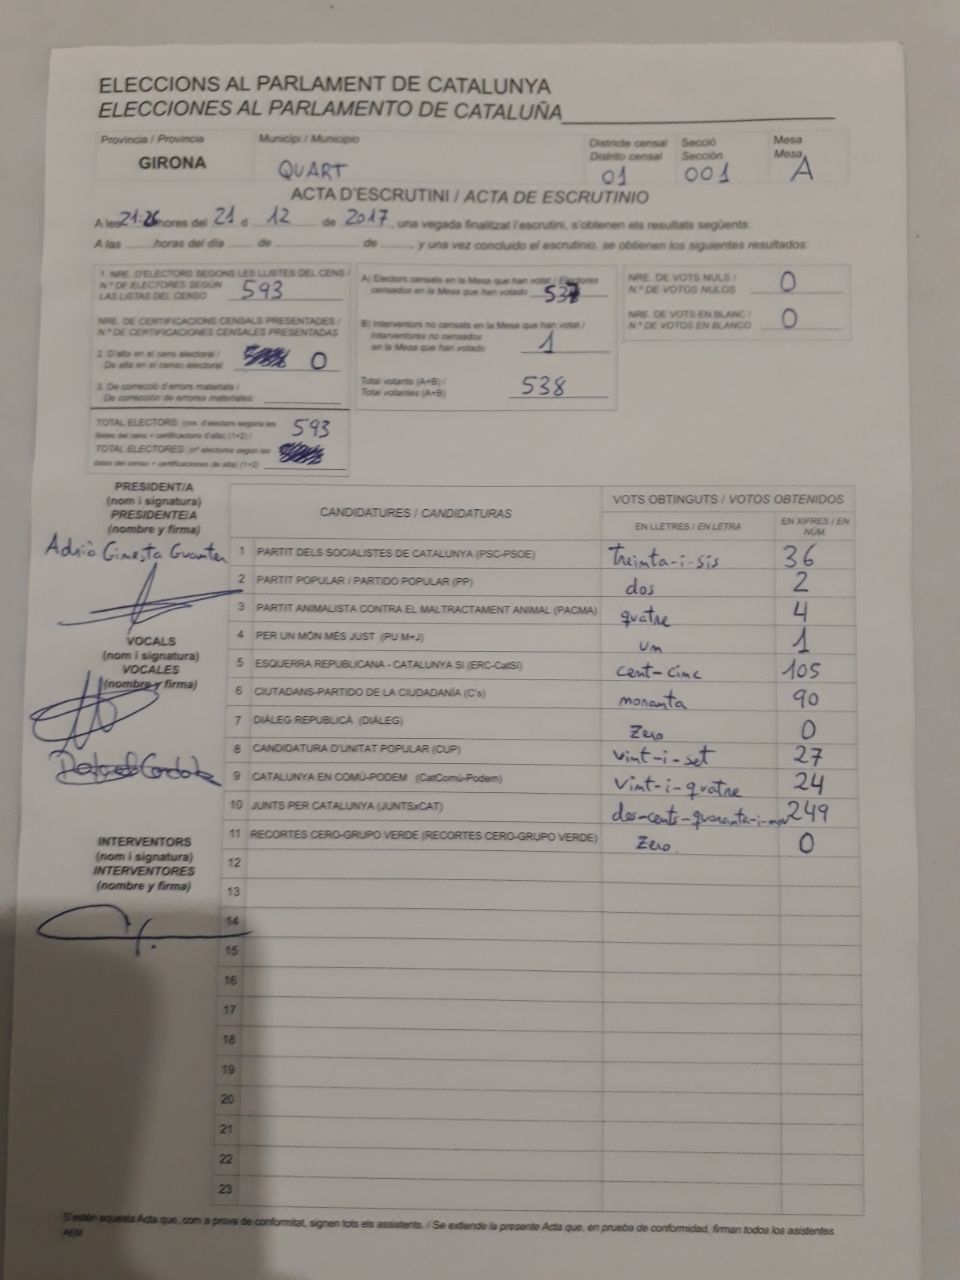 ELECCIONS AL PARLAMENT DE CATALUNYA
ELECCIONES AL PARLAMENTO DE CATALUÑA
Provincia / Provincia
GIRONA
Municipi / Municipio
QUART
Districte censal
Distrito censal
01
Secció
Sección
001
Mesa
Mesa
A
ACTA D'ESCRUTINI / ACTA DE ESCRUTINIO
A les 21:26 hores del 21 d 12 de 2017, una vegada finalitzat l'escrutini, s'obtenen els resultats següents:
A las horas del día de de , y una vez concluido el escrutinio, se obtienen los siguientes resultados:
1. NRE. D'ELECTORS SEGONS LES LLISTES DEL CENS /
N.º DE ELECTORES SEGÚN
LAS LISTAS DEL CENSO 593
NRE. DE CERTIFICACIONS CENSALS PRESENTADES /
N.º DE CERTIFICACIONES CENSALES PRESENTADAS
2. D'alta en el cens electoral /
De alta en el censo electoral: 0
3. De correcció d'errors materials /
De corrección de errores materiales:
TOTAL ELECTORS: (nre. d'electors segons les
llistes del cens + certificacions d'alta) (1+2) / 593
TOTAL ELECTORES: (nº electores según las
listas del censo + certificaciones de alta) (1+2)
A) Electors censats en la Mesa que han votat / Electores
censados en la Mesa que han votado 537
B) Interventors no censats en la Mesa que han votat /
Interventores no censados
en la Mesa que han votado 1
Total votants (A+B) /
Total votantes (A+B) 538
NRE. DE VOTS NULS /
N.º DE VOTOS NULOS 0
NRE. DE VOTS EN BLANC /
N.º DE VOTOS EN BLANCO 0
PRESIDENT/A
(nom i signatura)
PRESIDENTE/A
(nombre y firma)
Adrià Ginesta Guanter
VOCALS
(nom i signatura)
VOCALES
(nombre y firma)
INTERVENTORS
(nom i signatura)
INTERVENTORES
(nombre y firma)
CANDIDATURES / CANDIDATURAS
VOTS OBTINGUTS / VOTOS OBTENIDOS
EN LLETRES / EN LETRA
EN XIFRES / EN
NÚM.
1 PARTIT DELS SOCIALISTES DE CATALUNYA (PSC-PSOE) Treinta-i-sis 36
2 PARTIT POPULAR / PARTIDO POPULAR (PP) dos 2
3 PARTIT ANIMALISTA CONTRA EL MALTRACTAMENT ANIMAL (PACMA) quatre 4
4 PER UN MÓN MÉS JUST (PU M+J) un 1
5 ESQUERRA REPUBLICANA - CATALUNYA SÍ (ERC-CatSí) cent-cinc 105
6 CIUTADANS-PARTIDO DE LA CIUDADANÍA (C's) noranta 90
7 DIÀLEG REPUBLICÀ (DIÀLEG) Zero 0
8 CANDIDATURA D'UNITAT POPULAR (CUP) vint-i-set 27
9 CATALUNYA EN COMÚ-PODEM (CatComú-Podem) Vint-i-quatre 24
10 JUNTS PER CATALUNYA (JUNTSxCAT) dos-cents-quaranta-i-nou 249
11 RECORTES CERO-GRUPO VERDE (RECORTES CERO-GRUPO VERDE) Zero 0
12
13
14
15
16
17
18
19
20
21
22
23
S'estén aquesta Acta que, com a prova de conformitat, signen tots els assistents. / Se extiende la presente Acta que, en prueba de conformidad, firman todos los asistentes.
AEM